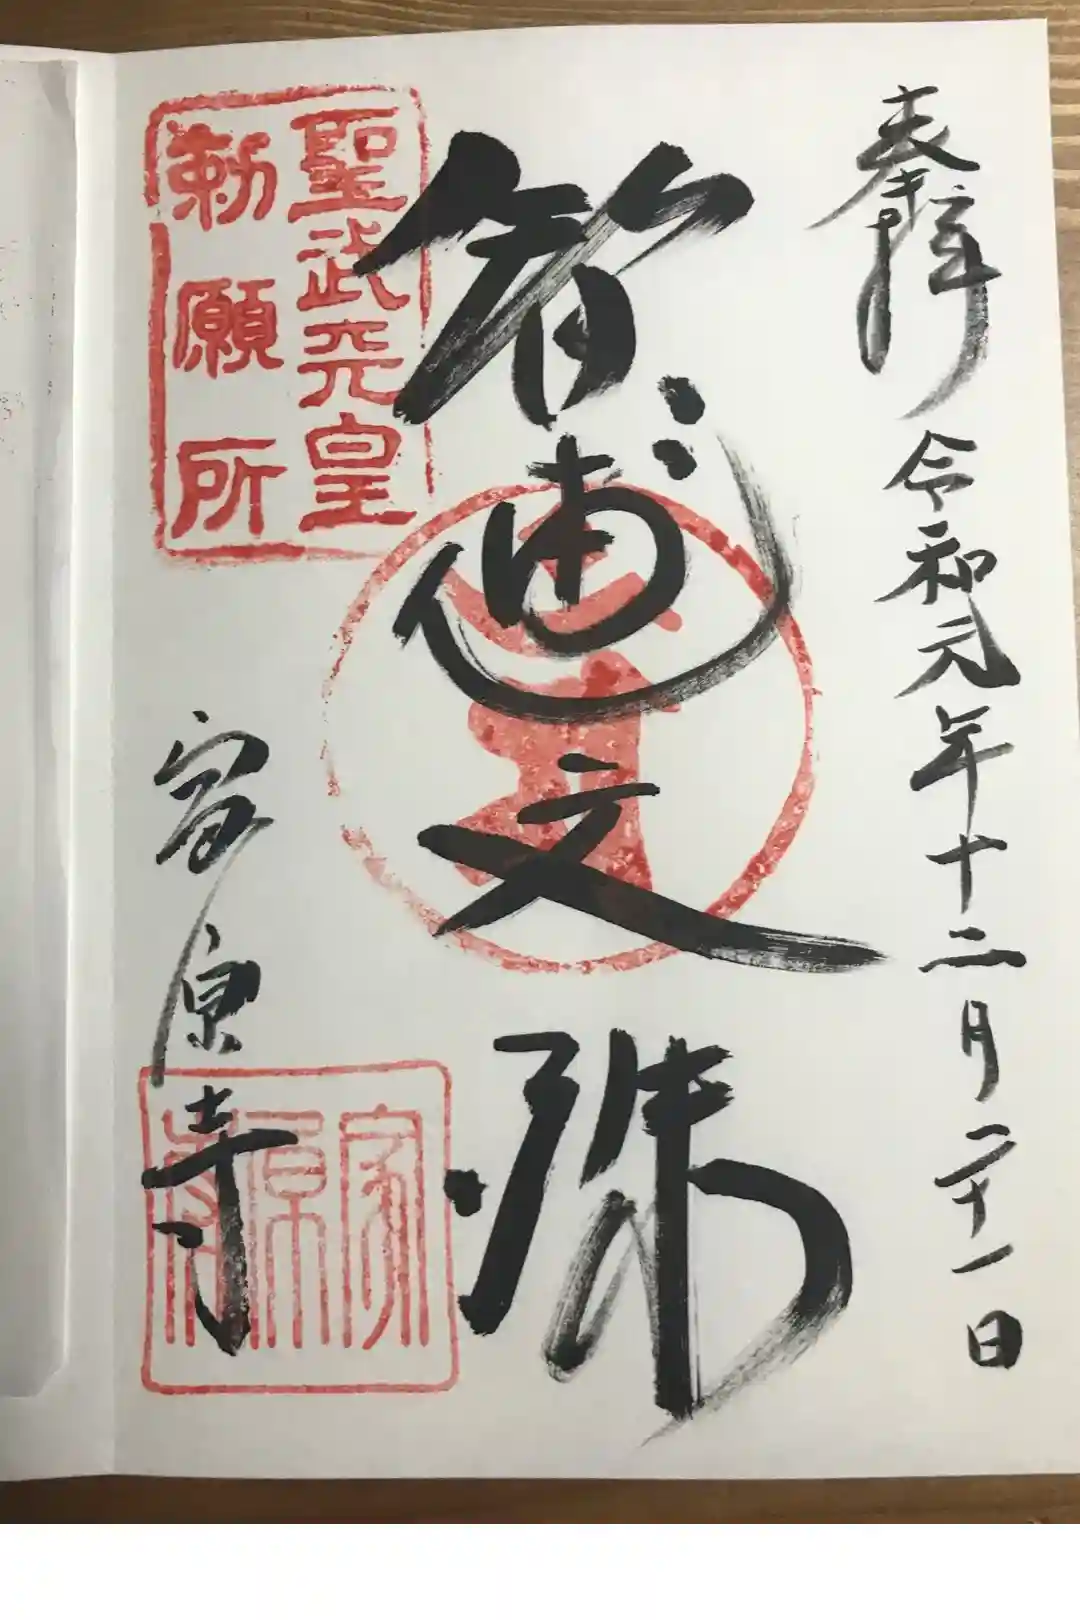 奉拝 令和元年十二月二十一日
智恵文殊
聖武天皇
勅願所
家原寺
家原寺